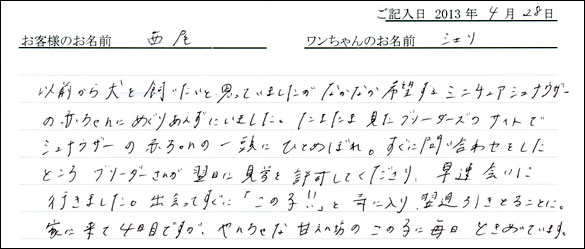 ご記入日 2013年 4月 28日
お客様のお名前 西尾 ワンちゃんのお名前 シェリ
以前から犬を飼いたいと思っていましたがなかなか希望するミニチュアシュナウザー
の赤ちゃんにめぐりあえずにいました。たまたま見たブリーダーズのサイトで
シュナウザーの赤ちゃんの一頭にひとめぼれ。すぐに問い合わせをした
ところブリーダーさんが翌日に見学を許可してくださり、早速会いに
行きました。出会ってすぐに「この子!!」と気に入り翌週引きとることに。
家に来て4日目ですが、やんちゃな甘えん坊のこの子に毎日ときめいています。